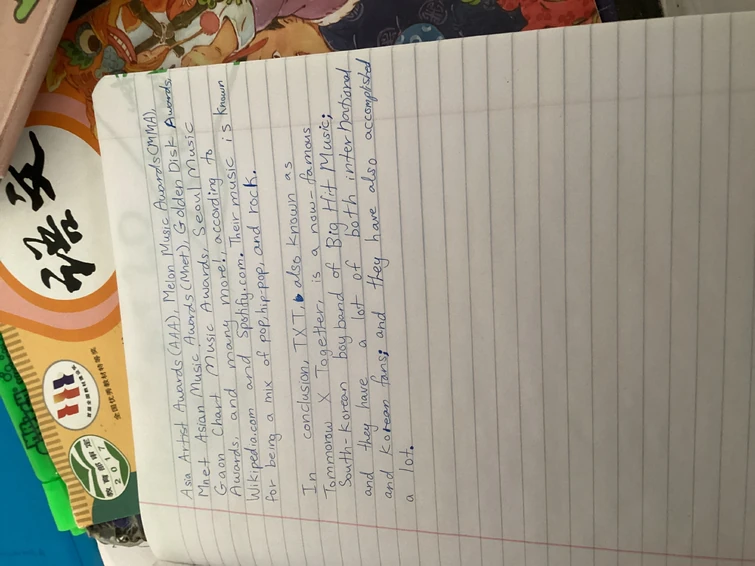 Asia Artist Awards (AAA), Melon Music Awards (MMA),
Mnet Asian Music Awards (Mnet), Golden Disk Awards
Gaon Chart Music Awards, Seoul Music
Awards, and many more!, according to
Wikipedia.com and Spotify.com. Their music is known
for being a mix of pop, hip-pop, and rock.
In conclusion, TXT, also known as
Tommorow X Together, is a now-famous
South-Korean boyband of Big Hit Music;
and they have a lot of both international
and Korean fans; and they have also accomplished
a lot.
语文
全国优秀教材特等奖
教育部审定
2017